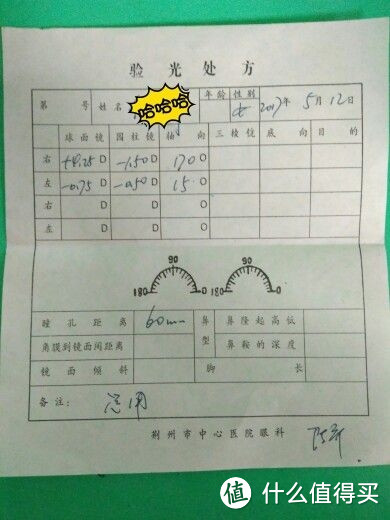 验光处方
第 号 姓名 哈哈哈 年龄 性别 女 2017年5月12日
球面镜 圆柱镜 轴向 三棱镜 底向 目的
右 D -1.50 D 170 O
左 -0.75 D -0.50 D 15 O
右 D D O
左 D D O
90 90
180 0 180 0
瞳孔距离 60mm 鼻型 鼻隆起高低
角膜到镜面间距离 鼻鞍的深度
镜面倾斜 脚长
备注: 常用
荆州市中心医院眼科
值 什么值得买